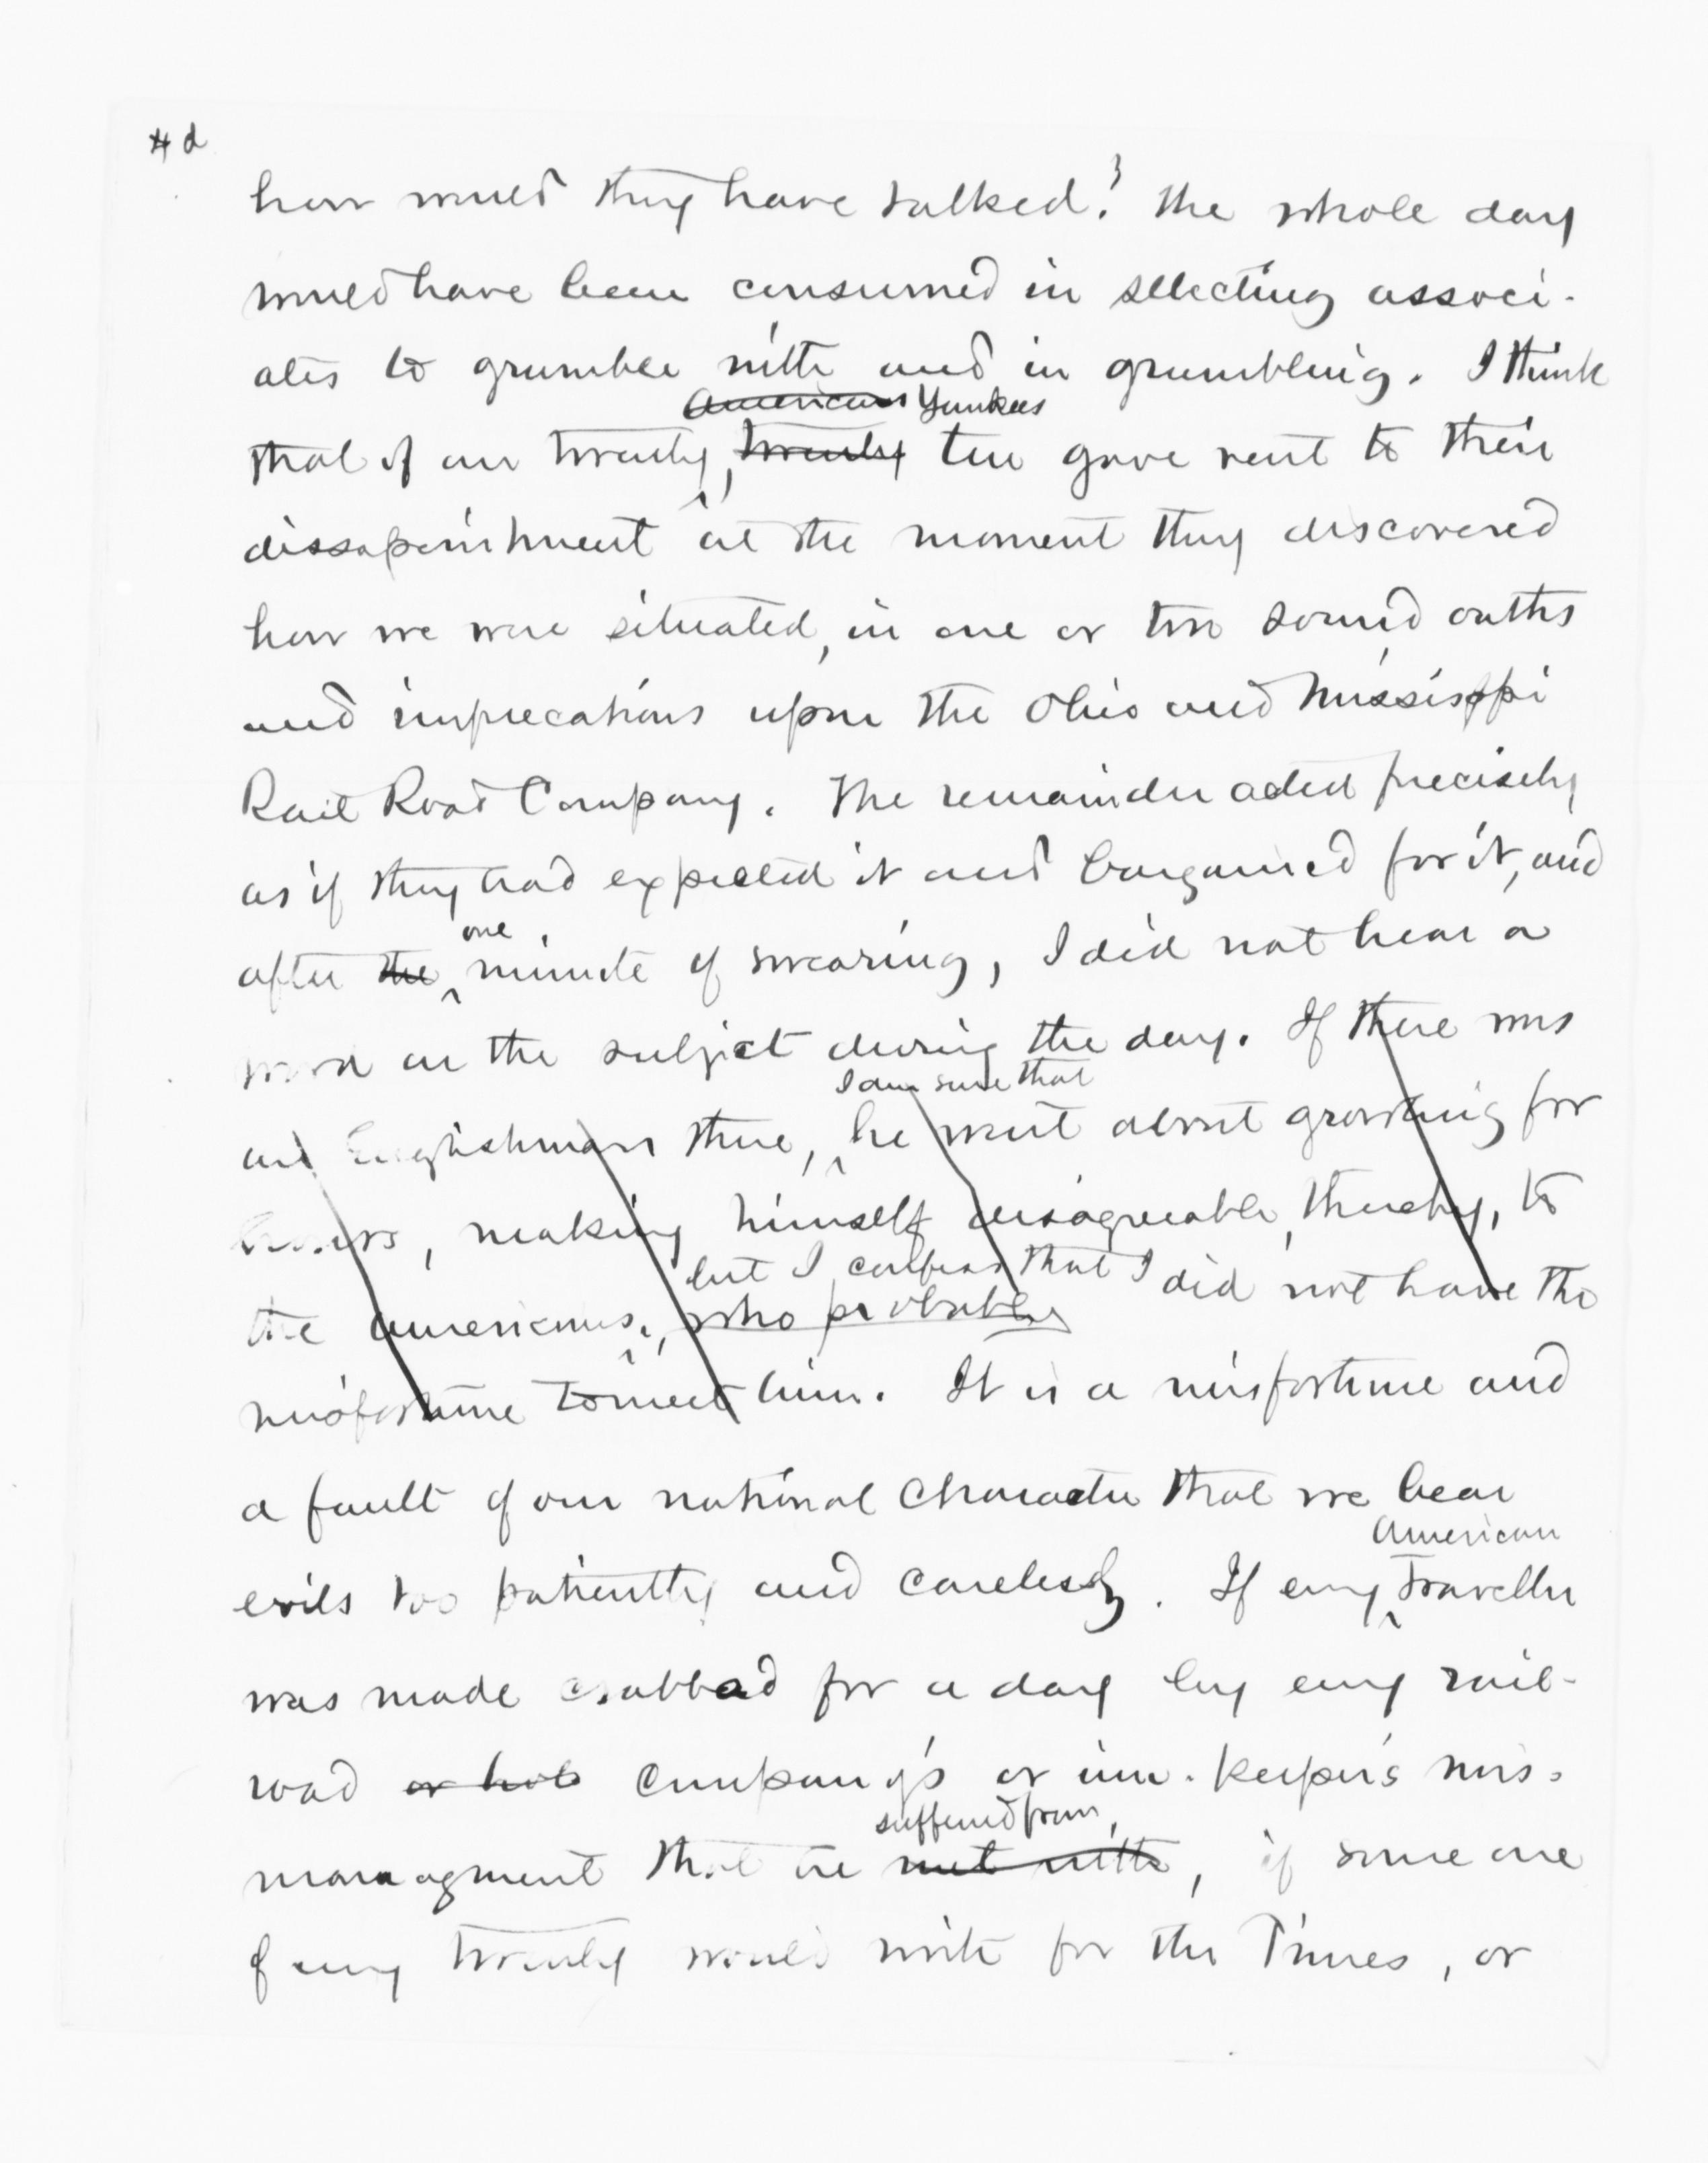 # d
how would they have talked? The whole day
would have been consumed in selecting associ-
ates to grumble with and in grumbling. I think
Americans Yankees
that of our twenty, twenty ten gave vent to their
dissapointment at the moment they discovered
how we were situated, in one or two sound oaths
and imprecations upon the Ohio and Mississippi
Rail Road Company. The remainder acted precisely
as if they had expected it and bargained for it, and
one
after the minute of swearing, I did not hear a
word on the subject during the day. If there was
I am sure that
an Englishman there, he went about growling for
hours, making himself disagreeable, thereby, to
but I confess that I did not have the
the Americans, who probably
misfortune to meet him. It is a misfortune and
a fault of our national character that we bear
American
evils too patiently and carelessly. If any Traveller
was made crabbed for a day by any rail-
road or hote company's or inn-keeper's mis-
suffered from,
managment that we met with, if some one
of any twenty would write for the Times, or